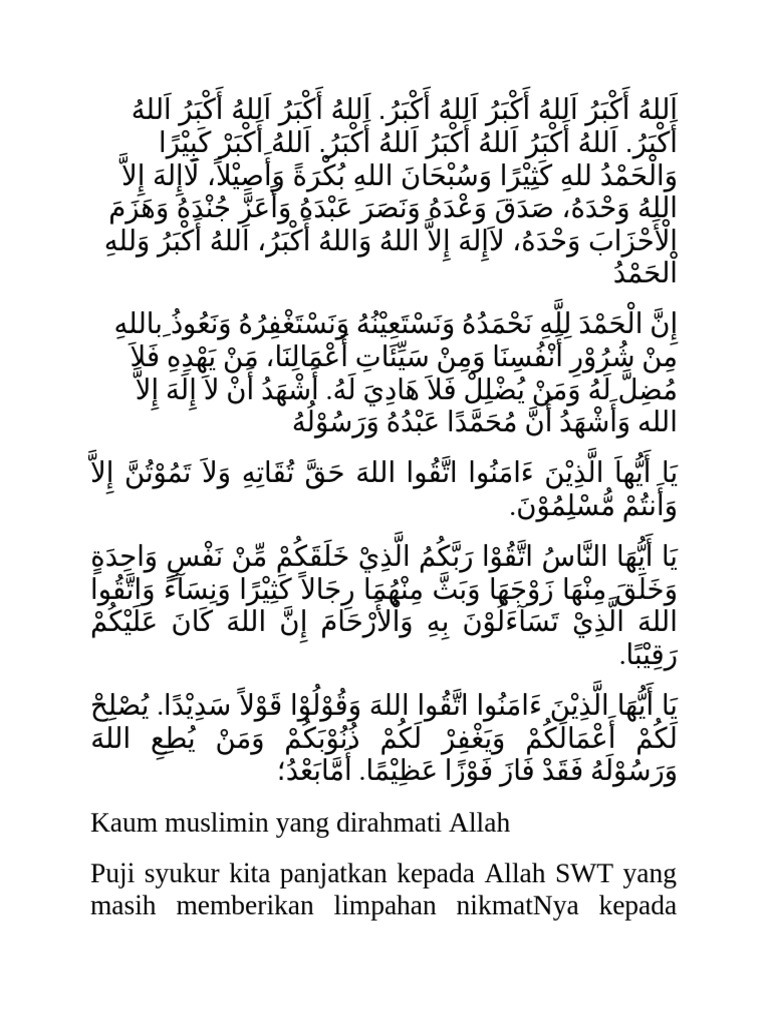 اَللهُ أَكْبَرُ اَللهُ أَكْبَرُ اَللهُ أَكْبَرُ. اَللهُ أَكْبَرُ اَللهُ أَكْبَرُ اَللهُ
أَكْبَرُ. اَللهُ أَكْبَرُ اَللهُ أَكْبَرُ اَللهُ أَكْبَرُ. اَللهُ أَكْبَرْ كَبِيْرًا
وَالْحَمْدُ للهِ كَثِيْرًا وَسُبْحَانَ اللهِ بُكْرَةً وَأَصِيْلاً، لَاإِلهَ إِلاَّ
اللهُ وَحْدَهُ، صَدَقَ وَعْدَهُ وَنَصَرَ عَبْدَهُ وَأَعَزَّ جُنْدَهُ وَهَزَمَ
الْأَحْزَابَ وَحْدَهُ، لاَإِلهَ إِلاَّ اللهُ وَاللهُ أَكْبَرُ، اَللهُ أَكْبَرُ وَللهِ
اْلحَمْدُ
إِنَّ الْحَمْدَ لِلَّهِ نَحْمَدُهُ وَنَسْتَعِيْنُهُ وَنَسْتَغْفِرُهُ وَنَعُوذُ ِباللهِ
مِنْ شُرُوْرِ أَنْفُسِنَا وَمِنْ سَيِّئَاتِ أَعْمَالِنَا، مَنْ يَهْدِهِ فَلاَ
مُضِلَّ لَهُ وَمَنْ يُضْلِلْ فَلاَ هَادِيَ لَهُ. أَشْهَدُ أَنْ لاَ إِلَهَ إِلاَّ
الله وَأَشْهَدُ أَنَّ مُحَمَّدًا عَبْدُهُ وَرَسُوْلُهُ
يَا أَيُّهاَ الَّذِيْنَ ءَامَنُوا اتَّقُوا اللهَ حَقَّ تُقَاتِهِ وَلاَ تَمُوْتُنَّ إِلاَّ
وَأَنتُمْ مُّسْلِمُوْنَ.
يَا أَيُّهَا النَّاسُ اتَّقُوْا رَبَّكُمُ الَّذِيْ خَلَقَكُمْ مِّنْ نَفْسٍ وَاحِدَةٍ
وَخَلَقَ مِنْهَا زَوْجَهَا وَبَثَّ مِنْهُمَا رِجَالاً كَثِيْرًا وَنِسَآءً وَاتَّقُوا
اللهَ الَّذِيْ تَسَآءَلُوْنَ بِهِ وَاْلأَرْحَامَ إِنَّ اللهَ كَانَ عَلَيْكُمْ
رَقِيْبًا.
يَا أَيُّهَا الَّذِيْنَ ءَامَنُوا اتَّقُوا اللهَ وَقُوْلُوْا قَوْلاً سَدِيْدًا. يُصْلِحْ
لَكُمْ أَعْمَالَكُمْ وَيَغْفِرْ لَكُمْ ذُنُوْبَكُمْ وَمَنْ يُطِعِ اللهَ
وَرَسُوْلَهُ فَقَدْ فَازَ فَوْزًا عَظِيْمًا. أَمَّابَعْدُ؛
Kaum muslimin yang dirahmati Allah
Puji syukur kita panjatkan kepada Allah SWT yang
masih memberikan limpahan nikmatNya kepada